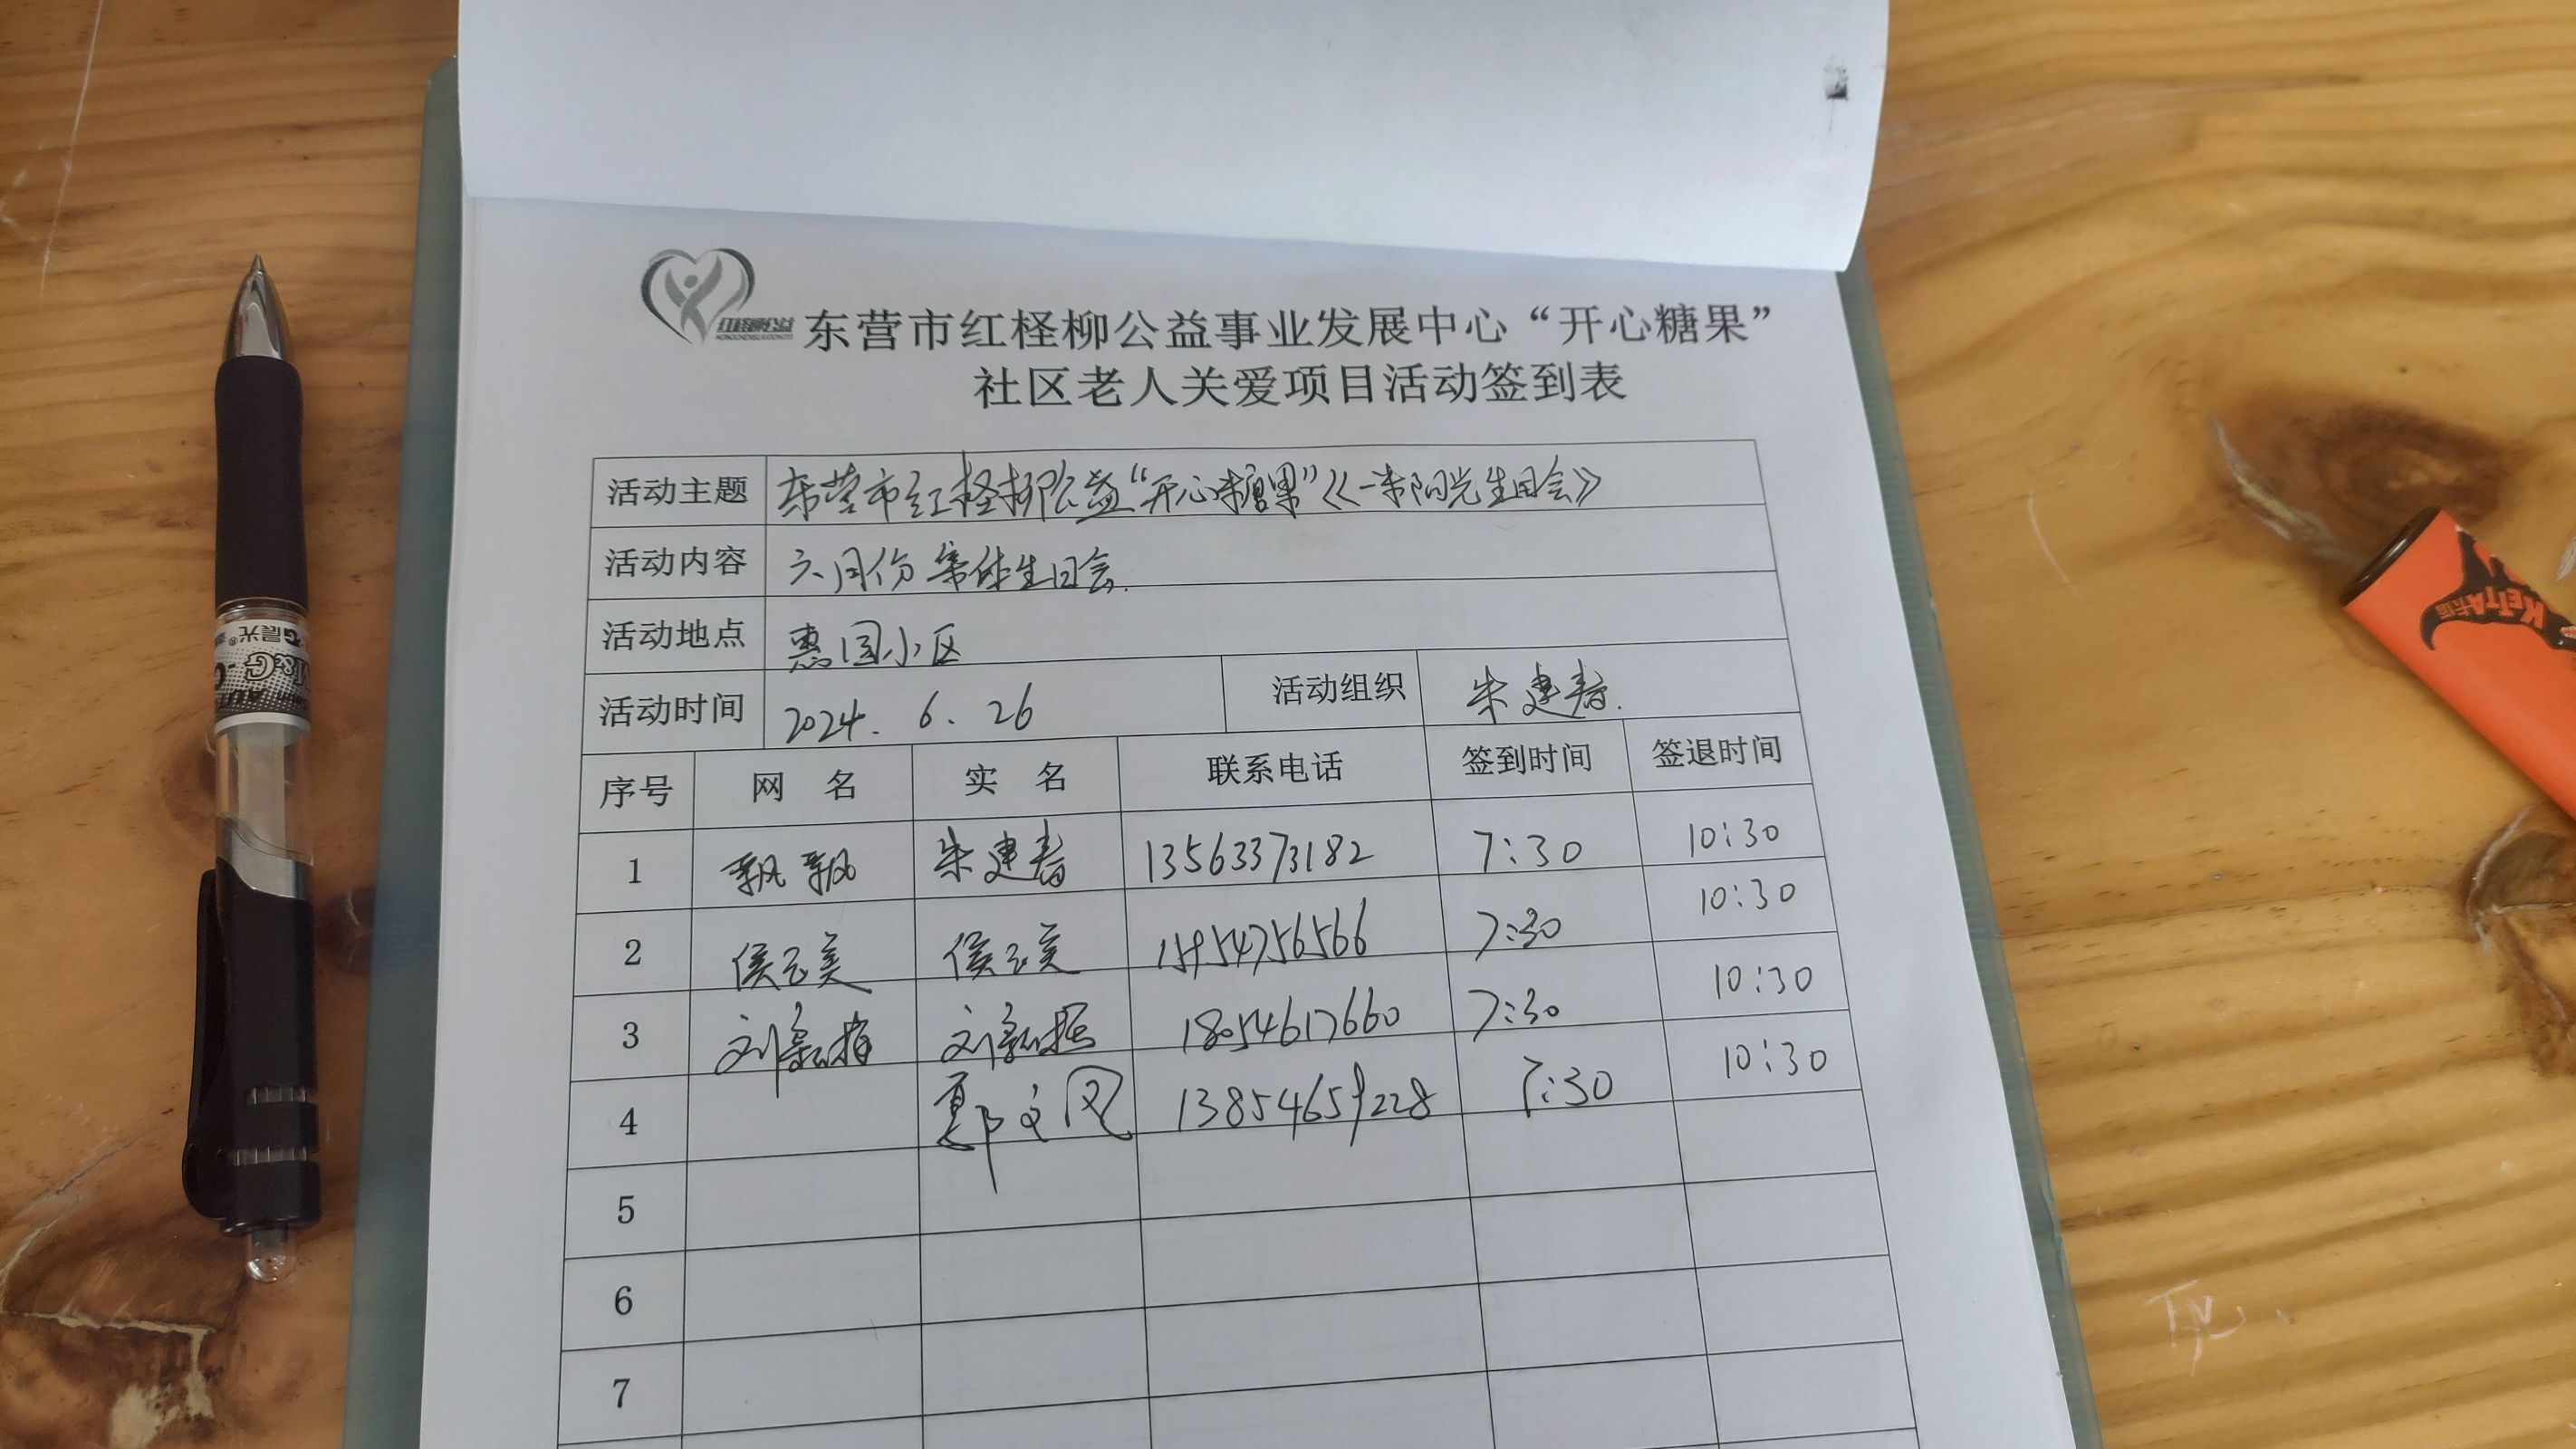 红柽柳公益
东营市红柽柳公益事业发展中心“开心糖果”
社区老人关爱项目活动签到表
活动主题 东营市红柽柳公益“开心糖果”《一米阳光生日会》
活动内容 六月份集体生日会.
活动地点 惠园小区
活动时间 2024. 6. 26 活动组织 朱建春.
序号 网 名 实 名 联系电话 签到时间 签退时间
1 飘飘 朱建春 13563373182 7:30 10:30
2 侯玉美 侯玉美 15954756566 7:30 10:30
3 刘 刘 18054617660 7:30 10:30
4 文风 13854659228 7:30 10:30
5
6
7
晨光
M&G
KEITA